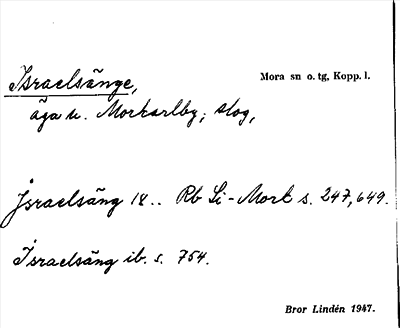 Israelsänge, Mora sn o. tg, Kopp. l.
äga u. Morkarlby; slog,
Jsraelsäng 18.. Rb Li-Mork s. 247, 649.
Israelsäng ib. s. 754.
Bror Lindén 1947.